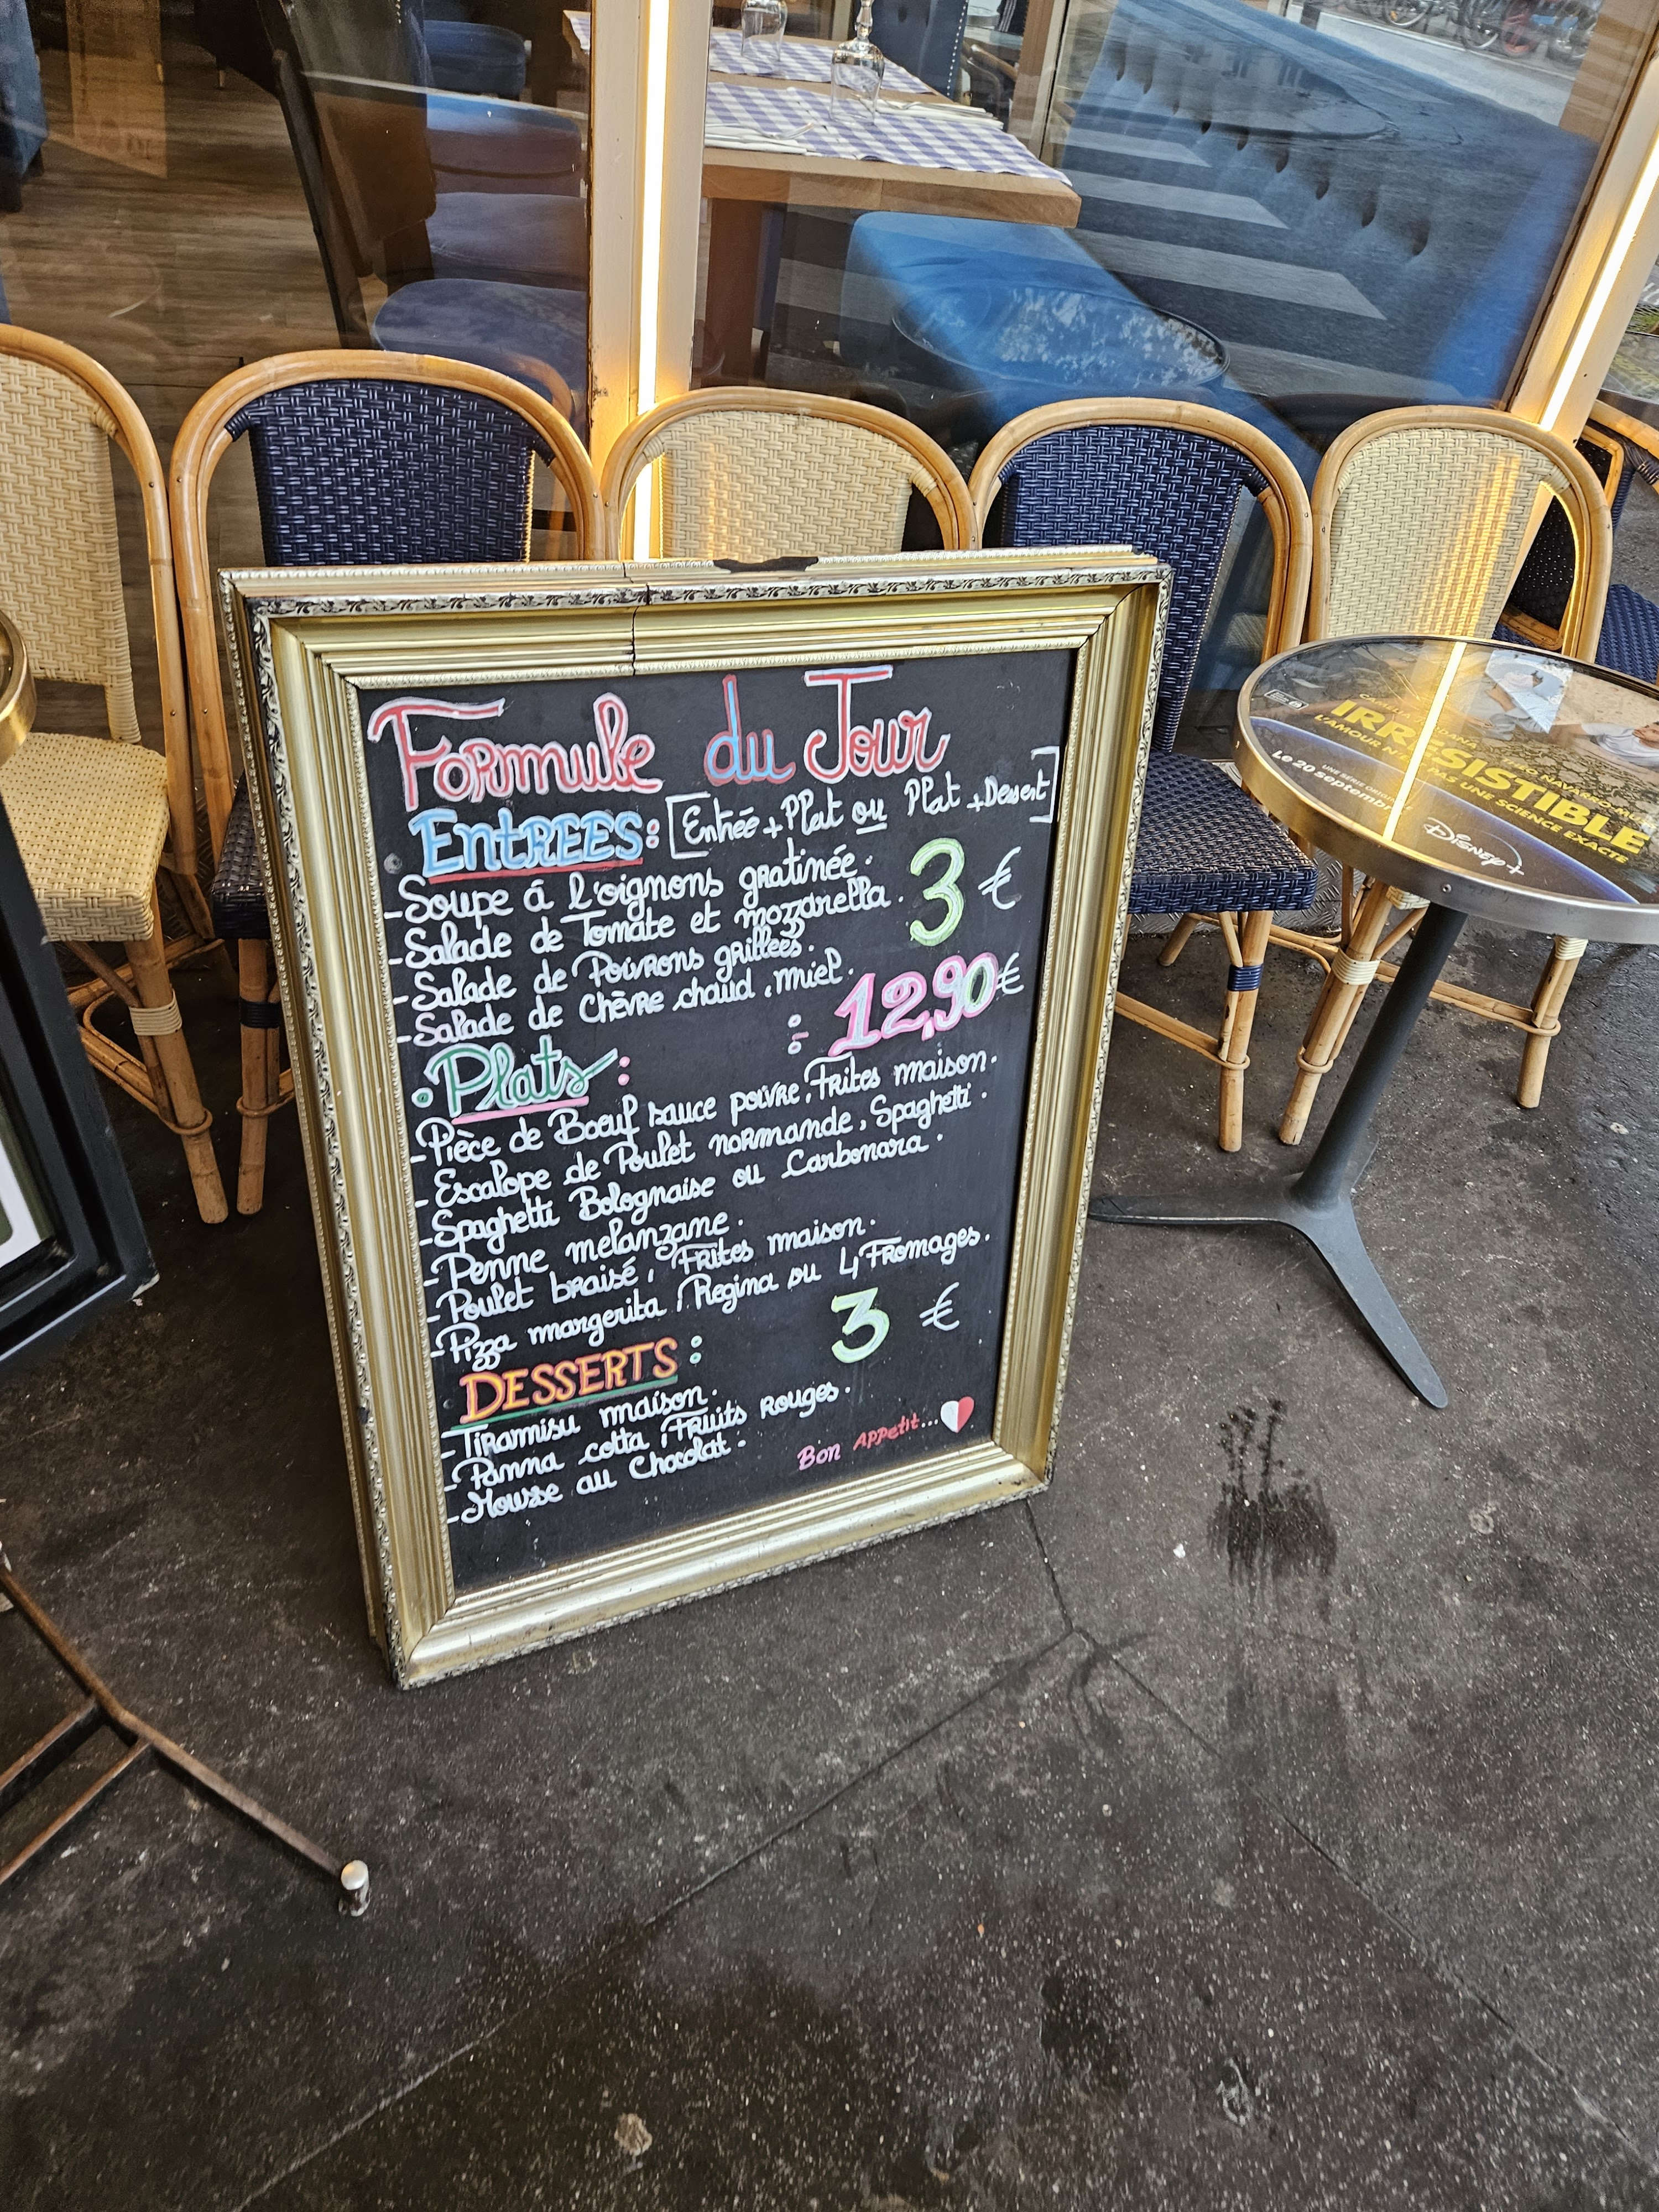 Formule du Jour
EntREES: [Entrée + Plat ou Plat + Dessert]
- Soupe á l'oignons gratinée.
- Salade de Tomate et mozzarella. 3 €
- Salade de Poivrons grillées.
- Salade de Chèvre chaud, miel.
• Plats : : 12,90€
- Pièce de Boeuf sauce poivre, Frites maison.
- Escalope de Poulet normande, Spaghetti.
- Spaghetti Bolognaise ou Carbonara.
- Penne melanzane.
- Poulet braisé, Frites maison.
- Pizza margerita, Regina ou 4 Fromages.
DESSERTS : 3 €
- Tiramisu maison.
- Panna cotta, Fruits Rouges.
- Mousse au Chocolat.
Bon Appetit...
IRRÉSISTIBLE
L'AMOUR N'EST PAS UNE SCIENCE EXACTE
Le 20 septembre
Disney+